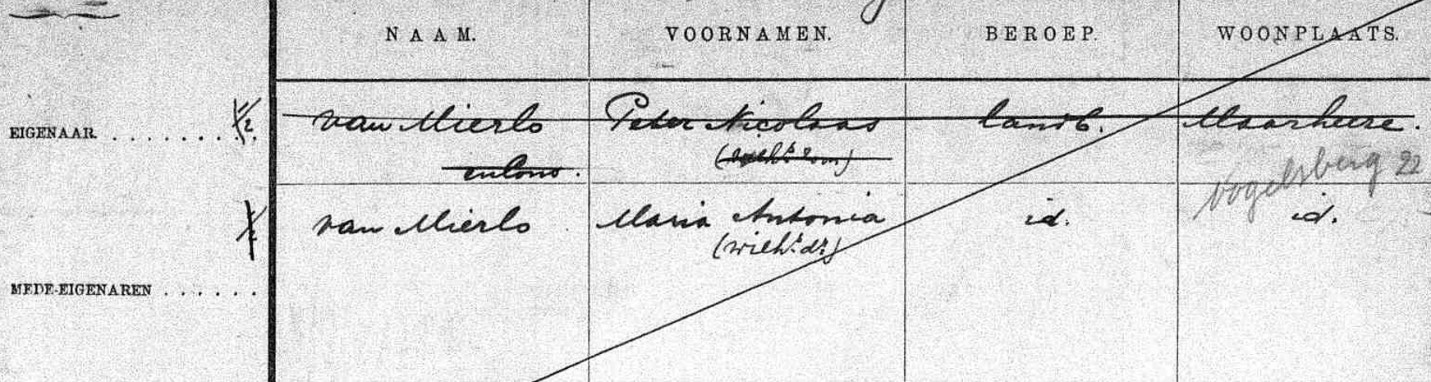 NAAM. VOORNAMEN. BEROEP. WOONPLAATS.
EIGENAAR 1/2 van Mierlo Peter Nicolaas landb. Maarheeze.
en Cons. (wilh.s zoon) Vogelsberg 22
van Mierlo Maria Antonia id. id.
(wilh.s dr.)
MEDE-EIGENAREN